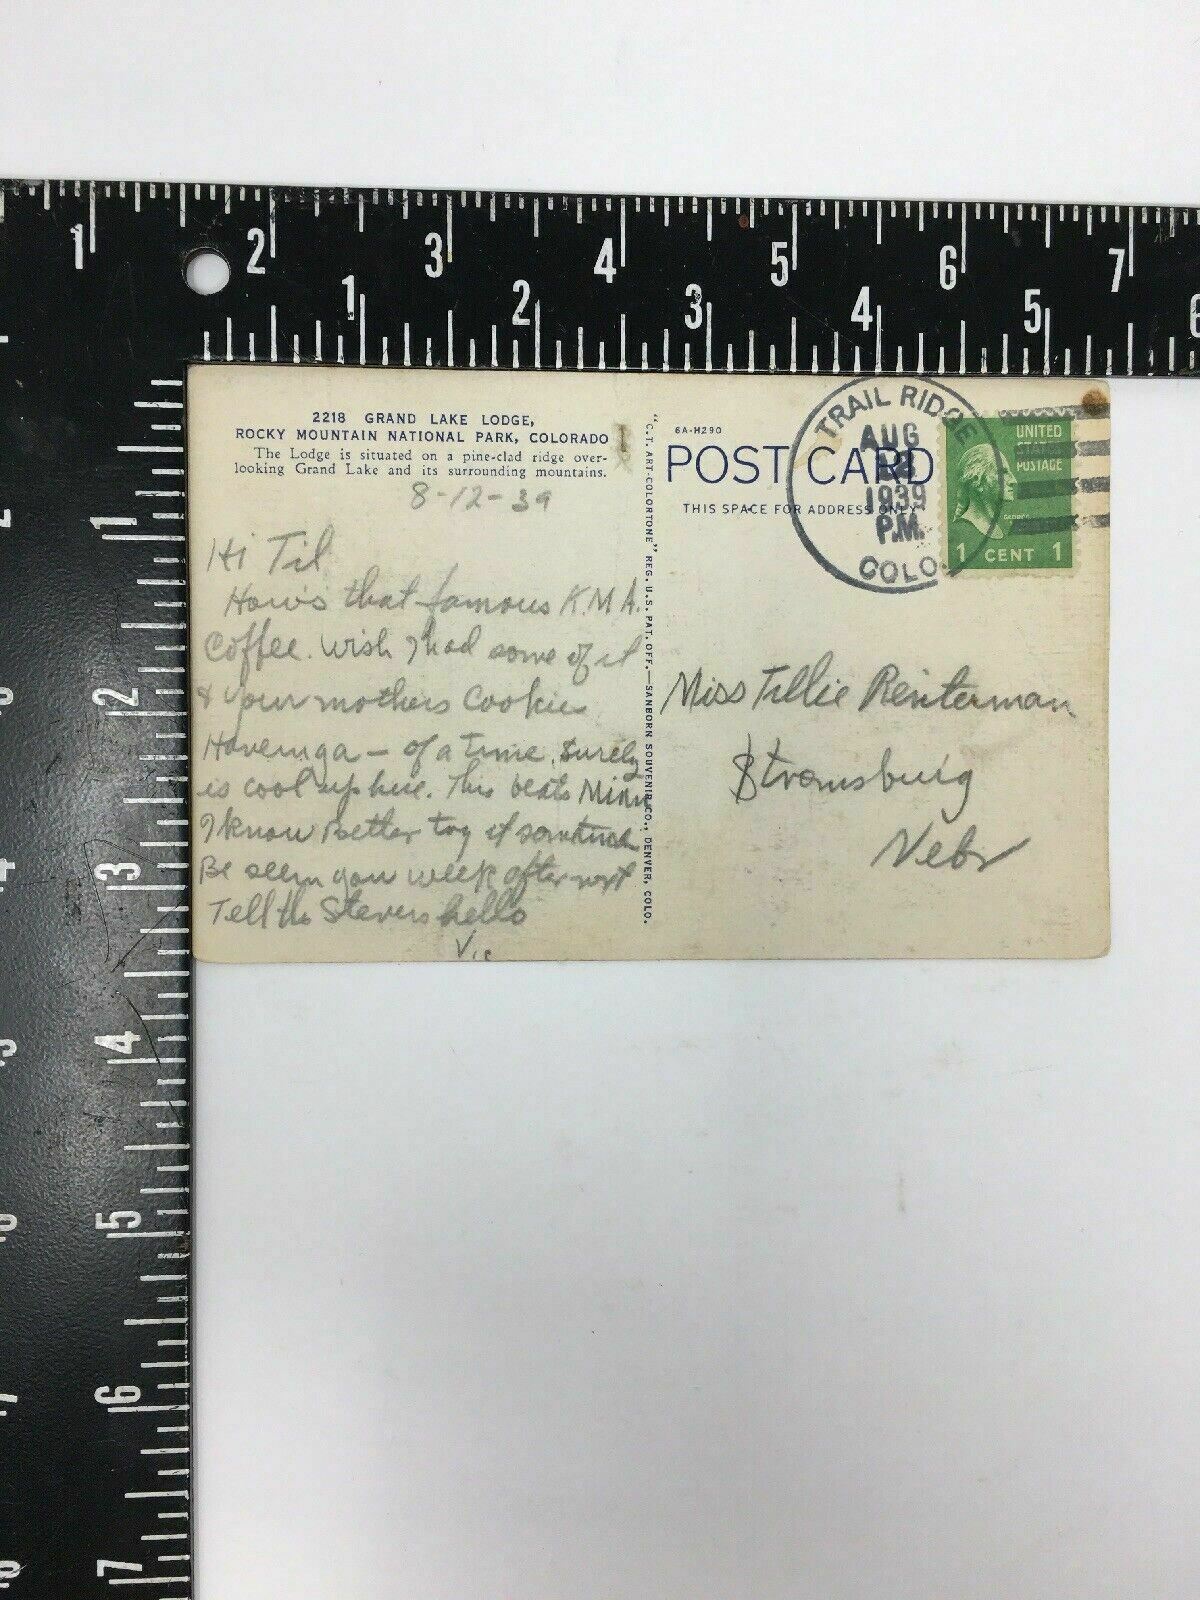 1 2 3 4 5 6 7
1 2 3 4 5 6
2218 GRAND LAKE LODGE,
ROCKY MOUNTAIN NATIONAL PARK, COLORADO
The Lodge is situated on a pine-clad ridge over-
looking Grand Lake and its surrounding mountains.
8-12-39
Hi Til
How's that famous K.M.A.
Coffee. Wish I had some of it
& your mothers Cookies
Having a - of a time. Surely
is cool up here. This beats Minn
I know Better try it sometime
Be seein you week after next
Tell the Stevens hello
Vic
"C.T. ART-COLORTONE" REG. U.S. PAT. OFF.—SANBORN SOUVENIR CO., DENVER, COLO.
6A-H290
POST CARD
THIS SPACE FOR ADDRESS ONLY
TRAIL RIDGE
AUG
1939
P.M.
COLO.
UNITED
STATES
POSTAGE
1 CENT 1
Miss Tillie
Stromsburg
Nebr
1
2
3
4
5
6
7